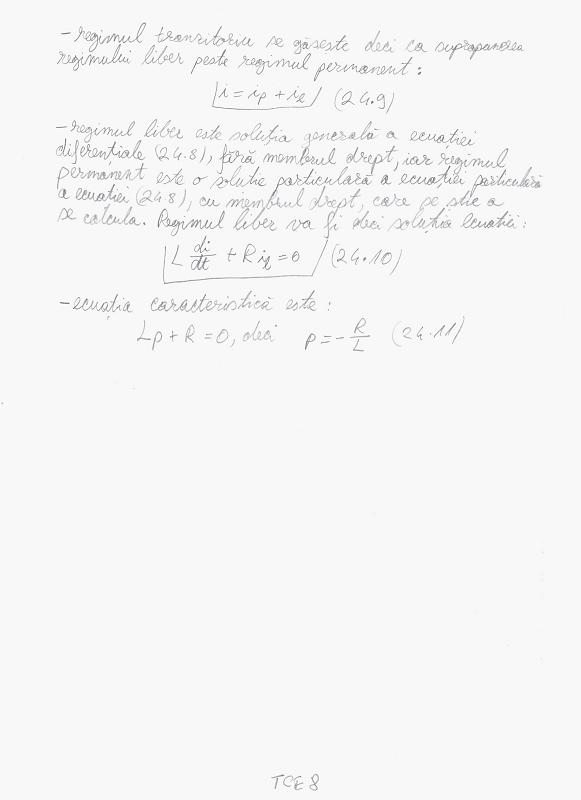 - regimul tranzitoriu se găseste deci ca suprapunerea
regimului liber peste regimul permanent :
i = ip + il (24.9)
- regimul liber este soluția generală a ecuației
diferențiale (24.8), fără membrul drept, iar regimul
permanent este o solutie particulară a ecuației particulară
a ecuatiei (24.8), cu membrul drept, care se stie a
se calcula. Regimul liber va fi deci soluția ecuatiei :
L di/dt + R il = 0 (24.10)
- ecuația caracteristică este :
Lp + R = 0, deci p = - R/L (24.11)
TCE 8